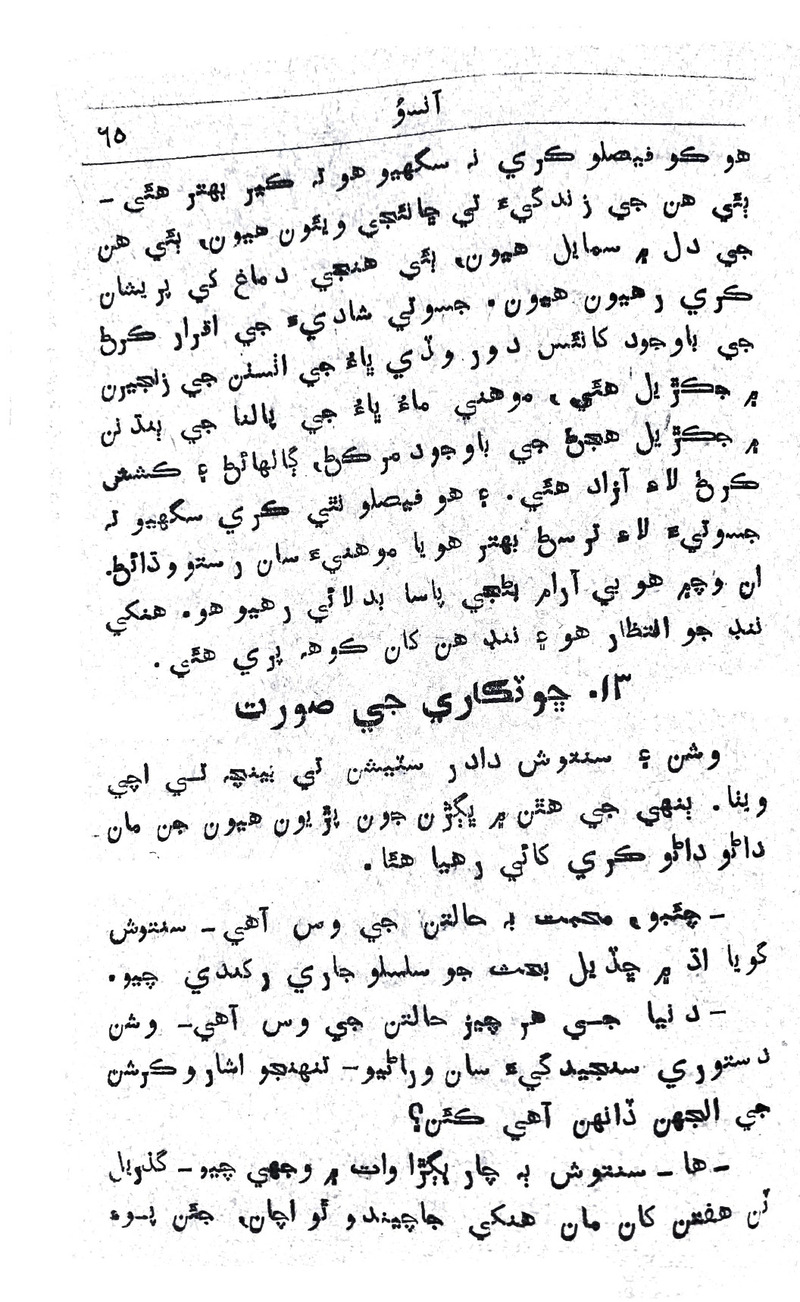 آنسوُ
٦٥
هو ڪو فيصلو ڪري نہ سگهيو هو تہ ڪير بهتر هئي –
ٻئي هن جي زندگيءَ تي ڇانئجي ويئون هيون، ٻئي هن
جي دل ۾ سمايل هيون، ٻئي هنجي دماغ کي پريشان
ڪري رهيون هيون. جسوتي شاديءَ جي اقرار ڪرڻ
جي باوجود کانئس دور وڏي ڀاءُ جي انسٽن جي زنجيرن
۾ جڪڙيل هئي، موهني ماءُ پاءُ جي پالنا جي ٻنڌنن
۾ جڪڙيل هجڻ جي باوجود مرڪڻ، ڳالهائڻ ۽ ڪشش
ڪرڻ لاءِ آزاد هئي. ۽ هو فيصلو نٿي ڪري سگهيو تہ
جسوتيءَ لاءِ ترسڻ بهتر هو يا موهنيءَ سان رستو وڌائڻ.
ان وچ۾ هو بي آرام بڻجي پاسا بدلائي رهيو هو. هنکي
ننڊ جو انتظار هو ۽ ننڊ هن کان ڪوهہ پري هئي.
١٣. ڇوٽڪاري جي صورت
وشن ۽ سنتوش دادر سٽيشن تي بينچہ تي اچي
ويٺا. ٻنهي جي هٿن ۾ ڀڳڙن جون پڙيون هيون جن مان
داڻو داڻو ڪري کائي رهيا هئا.
– ڇئبو، محبت بہ حالتن جي وس آهي – سنتوش
گويا اڌ ۾ ڇڏيل بحث جو سلسلو جاري رکندي چيو.
– دنيا جي هر چيز حالتن جي وس آهي – وشن
دستوري سنجيدگيءَ سان وراڻيو – تنهنجو اشارو ڪرشن
جي الجهن ڏانهن آهي ڪئن؟
– ها – سنتوش ٻہ چار ڀڳڙا وات ۾ وجهي چيو – گذريل
ٽن هفتن کان مان هنکي جاچيندو ٿو اچان، جئن پوءِ